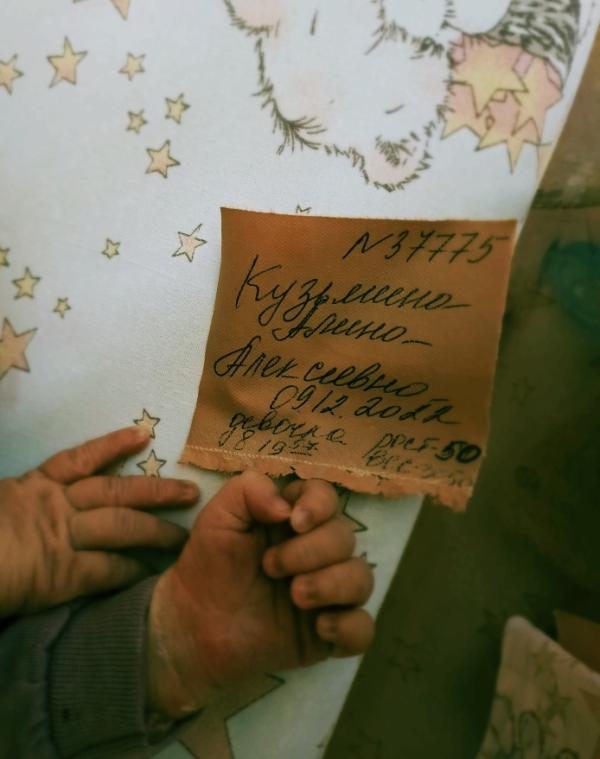 N37775
Кузьмина
Алина
Алексеевна
09.12.2022
девочка рост-50
в 19⁵⁷ вес-